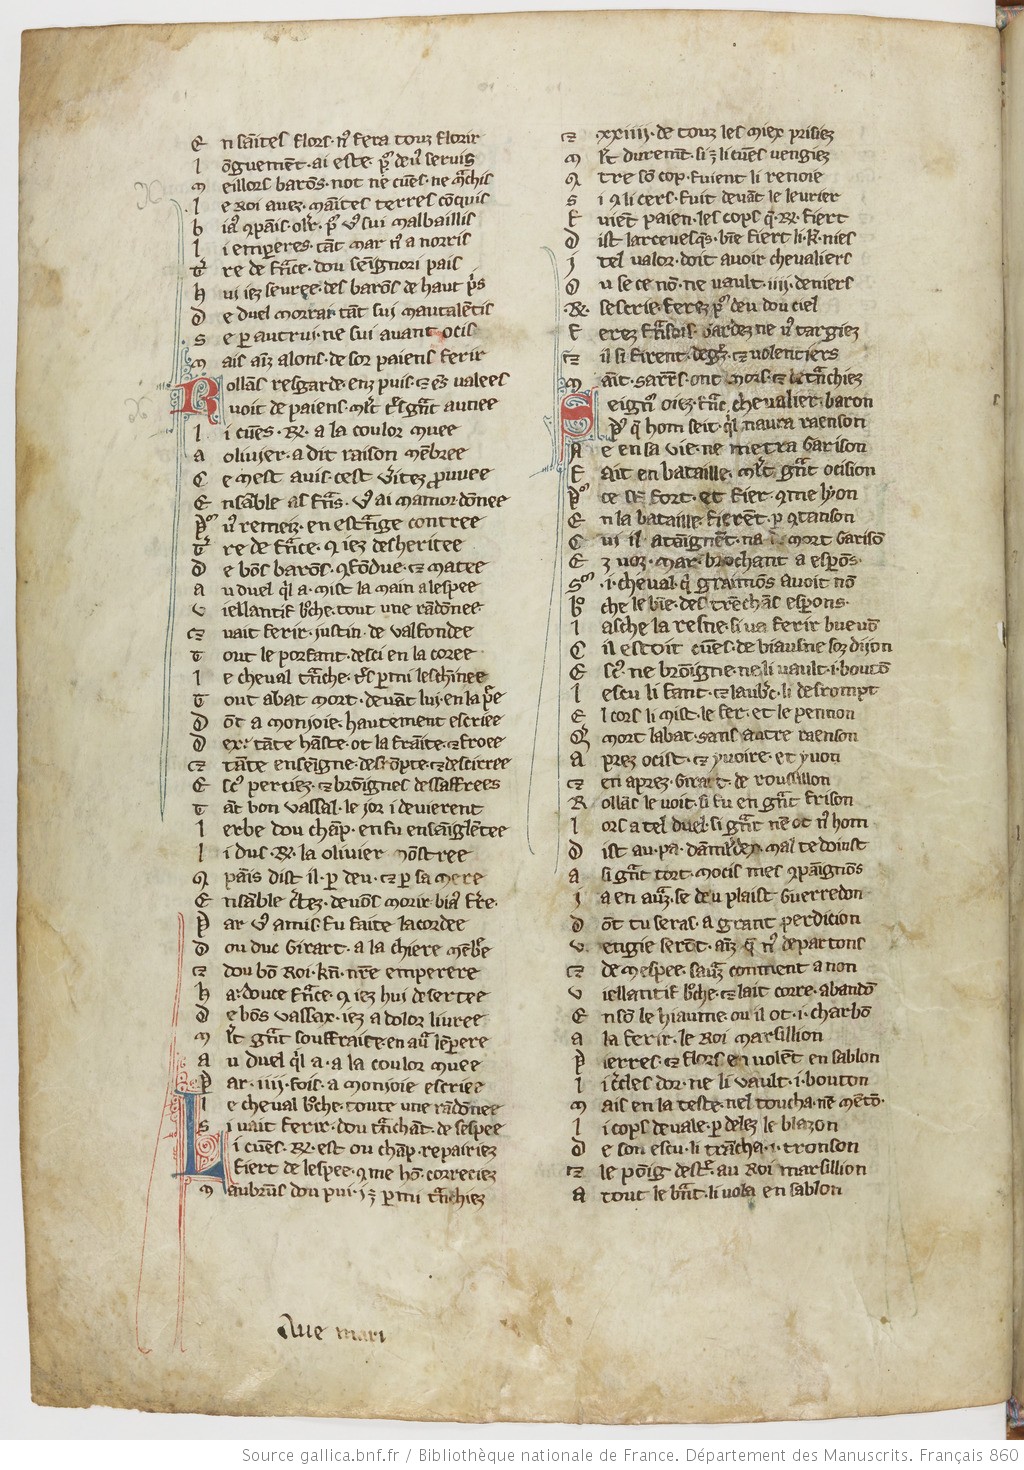 E n sãites flors · nꝰ fera touz florir
l õguemẽt · ai este · pͬ deuꝰ seruis
m eillors barõs · not ne cuẽs · ne mͣchis
l e Roi auez · mãites terres cõquis
b iaꝰ ꝯpãis · olr̃ · pͬ vꝰ sui malbaillis
l i emperes · tãt mar nꝰ a norris
T re de frãce · dou sẽignori pais
h ui iez seuree · des barõs de haut pͥs
D e duel morrai · tãt sui mautalẽtis
S e per autrui · ne sui auant ocis
m ais aĩz alons · de sor paiens ferir
R ollãs resgarde · enz puis · ⁊ es valees
v uoit de paiens · ml̃t tres gͣnt aunee
l i cuẽs · R̃ · a la coulor muee
a oliuier · a dit raison mẽbree
C e mest auis · cest vͥtez prouee
E nsãble as frãs · vꝰ ai mamor dõnee
P ͬ uꝰ remeiz · en estrͣnge contree
T re de frãce · ꝗ iez desheritee
D e bõs barõs · ꝯfõdue · ⁊ matee
a u duel ql a · mist la main a lespee
v iellantif bͦche · tout une rãdõnee
⁊ vait ferir · iustin · de valfondee
T out le porfant · desci en la coree
l e cheval trͣche · trͦs parmi leschinee
T out abat mort · deuãt lui · en la pͬe
D õt a monioie · hautement escriee
D ex · tãte hãste · ot la frãite · ⁊ froee
⁊ tãte ensẽigne · desrõpte · ⁊ descirree
E scͦ perciez · ⁊ brõignes dessaffrees
T ãt bon vassal · le ior i deuierent
l erbe dou chãp · en fu ensẽiglẽtee
l i dus · R̃ · la oliuier mõstree
ꝗ pãis dist il · par deu · ⁊ par sa mere
E nsãble cͥtez · deuõs morir biaꝰ frẽ ·
P ar vꝰ amis · fu faite lacordee
D ou duc Girart · a la chiere mẽbͬe
⁊ dou bõ Roi · kñ · nr̃e emperere
h a · douce frͣce · ꝗ iez hui desertee
D e bõs vassax · iez a dolor liuree
m l̃t gͣnt souffraite · en auͣ lẽpere
a u duel ql a · a la coulor muee
P ar · iiij · fois · a monioie escriee
l e cheval bͦche · toute une rãdõnee
S i vait ferir · dou trͣchãt · de sespee
L i cuẽs · R̃ · est ou chãp · repairiez
fiert de lespee · ꝯme hõ · correciez
m aubrus dou pui · i ꝫ par mi trͣchiez
⁊ · xxiiij · de touz les miex prisiez
m l̃t duremẽt · si ꝫ li cuẽs vengiez
ꝗ tre sõ cop · fuient li renoie
S i ꝯ li cers · fuit deuãt le leurier
f vient paien · les cops qͥ · R̃ · fiert
D ist larceuesqͥs · bĩe fiert li · k̃ · nies
i tel valor · doit auoir chevaliers
O u se ce nõ · ne vault · iiij · deniers
· R̃ · sescrie · ferez pͬ deu dou ciel
f erez frãsois · Gardez ne uꝰ targiez
⁊ il si firent · degͬz · ⁊ volentiers
m ãit · sarr̃s · ont mors · ⁊ detrͣnchiez
S eignꝰ oiez · frͣc chevalier · baron
Pͬ qͥ hom seit · ql naura raenson
N e en sa vie · ne metra Garison
F ait en bataille · ml̃t gͣnt ocision
Pͬ ce st̃ fort · et fier · ꝯme lyon
E n la bataille · fierẽt · par ꝯtanson
C ui il atãignẽt · na de mort Garisõ
E z voz · mar · brochant a esperõs
Sͬ · i · cheval · qͥ graimõs auoit nõ
b ͦche le bĩe · des trẽchãs esperons ·
l asche la resne · si va ferir bueuõ
C il estoit · cuẽs · de biausne soz diion
E scͦ · ne brõigne · ne li vault · i · boutõ
l escu li fant · ⁊ laubͬc · li desrompt
E l cors li mist · le fer · et le pennon
Q mort labat · sans autre raenson
A prez ocist · ⁊ yuoire · et yuon
⁊ en aprez · Girart · de rousillon
R ollãs le voit · si fu en gͣnt frison
l ors a tel duel · si gͣnt nẽ ot nꝰ hom
D ist au · pa · dãmldex · mal te doinst
a si gͣnt tort · mocis mes ꝯpãignõs
i a en auͣz · se deu plaist Guerredon
D õt tu seras · a grant perdition
v engie serõt · aĩz qͥ nꝰ departons
⁊ de mespee · sauͣz comment a non
v iellantif bͦche · ⁊ lait corre · abandõ
E n sõ le hiaume · ou il ot · i · charbõ
a la ferir · le Roi marsillion
P ierres · ⁊ flors en volẽt en sablon
l i cͥcles dor · ne li vault · i · bouton
m ais en la teste · nel toucha · nẽ mẽtõ ·
l i cops deuale · par delez le blazon
D e son escu · li trãcha · i · tronson
⁊ le põig destͬ · au Roi marsillion
A tout le brͣt · li vola en sablon
Aue mari
Source gallica.bnf.fr / Bibliothèque nationale de France. Département des Manuscrits. Français 860